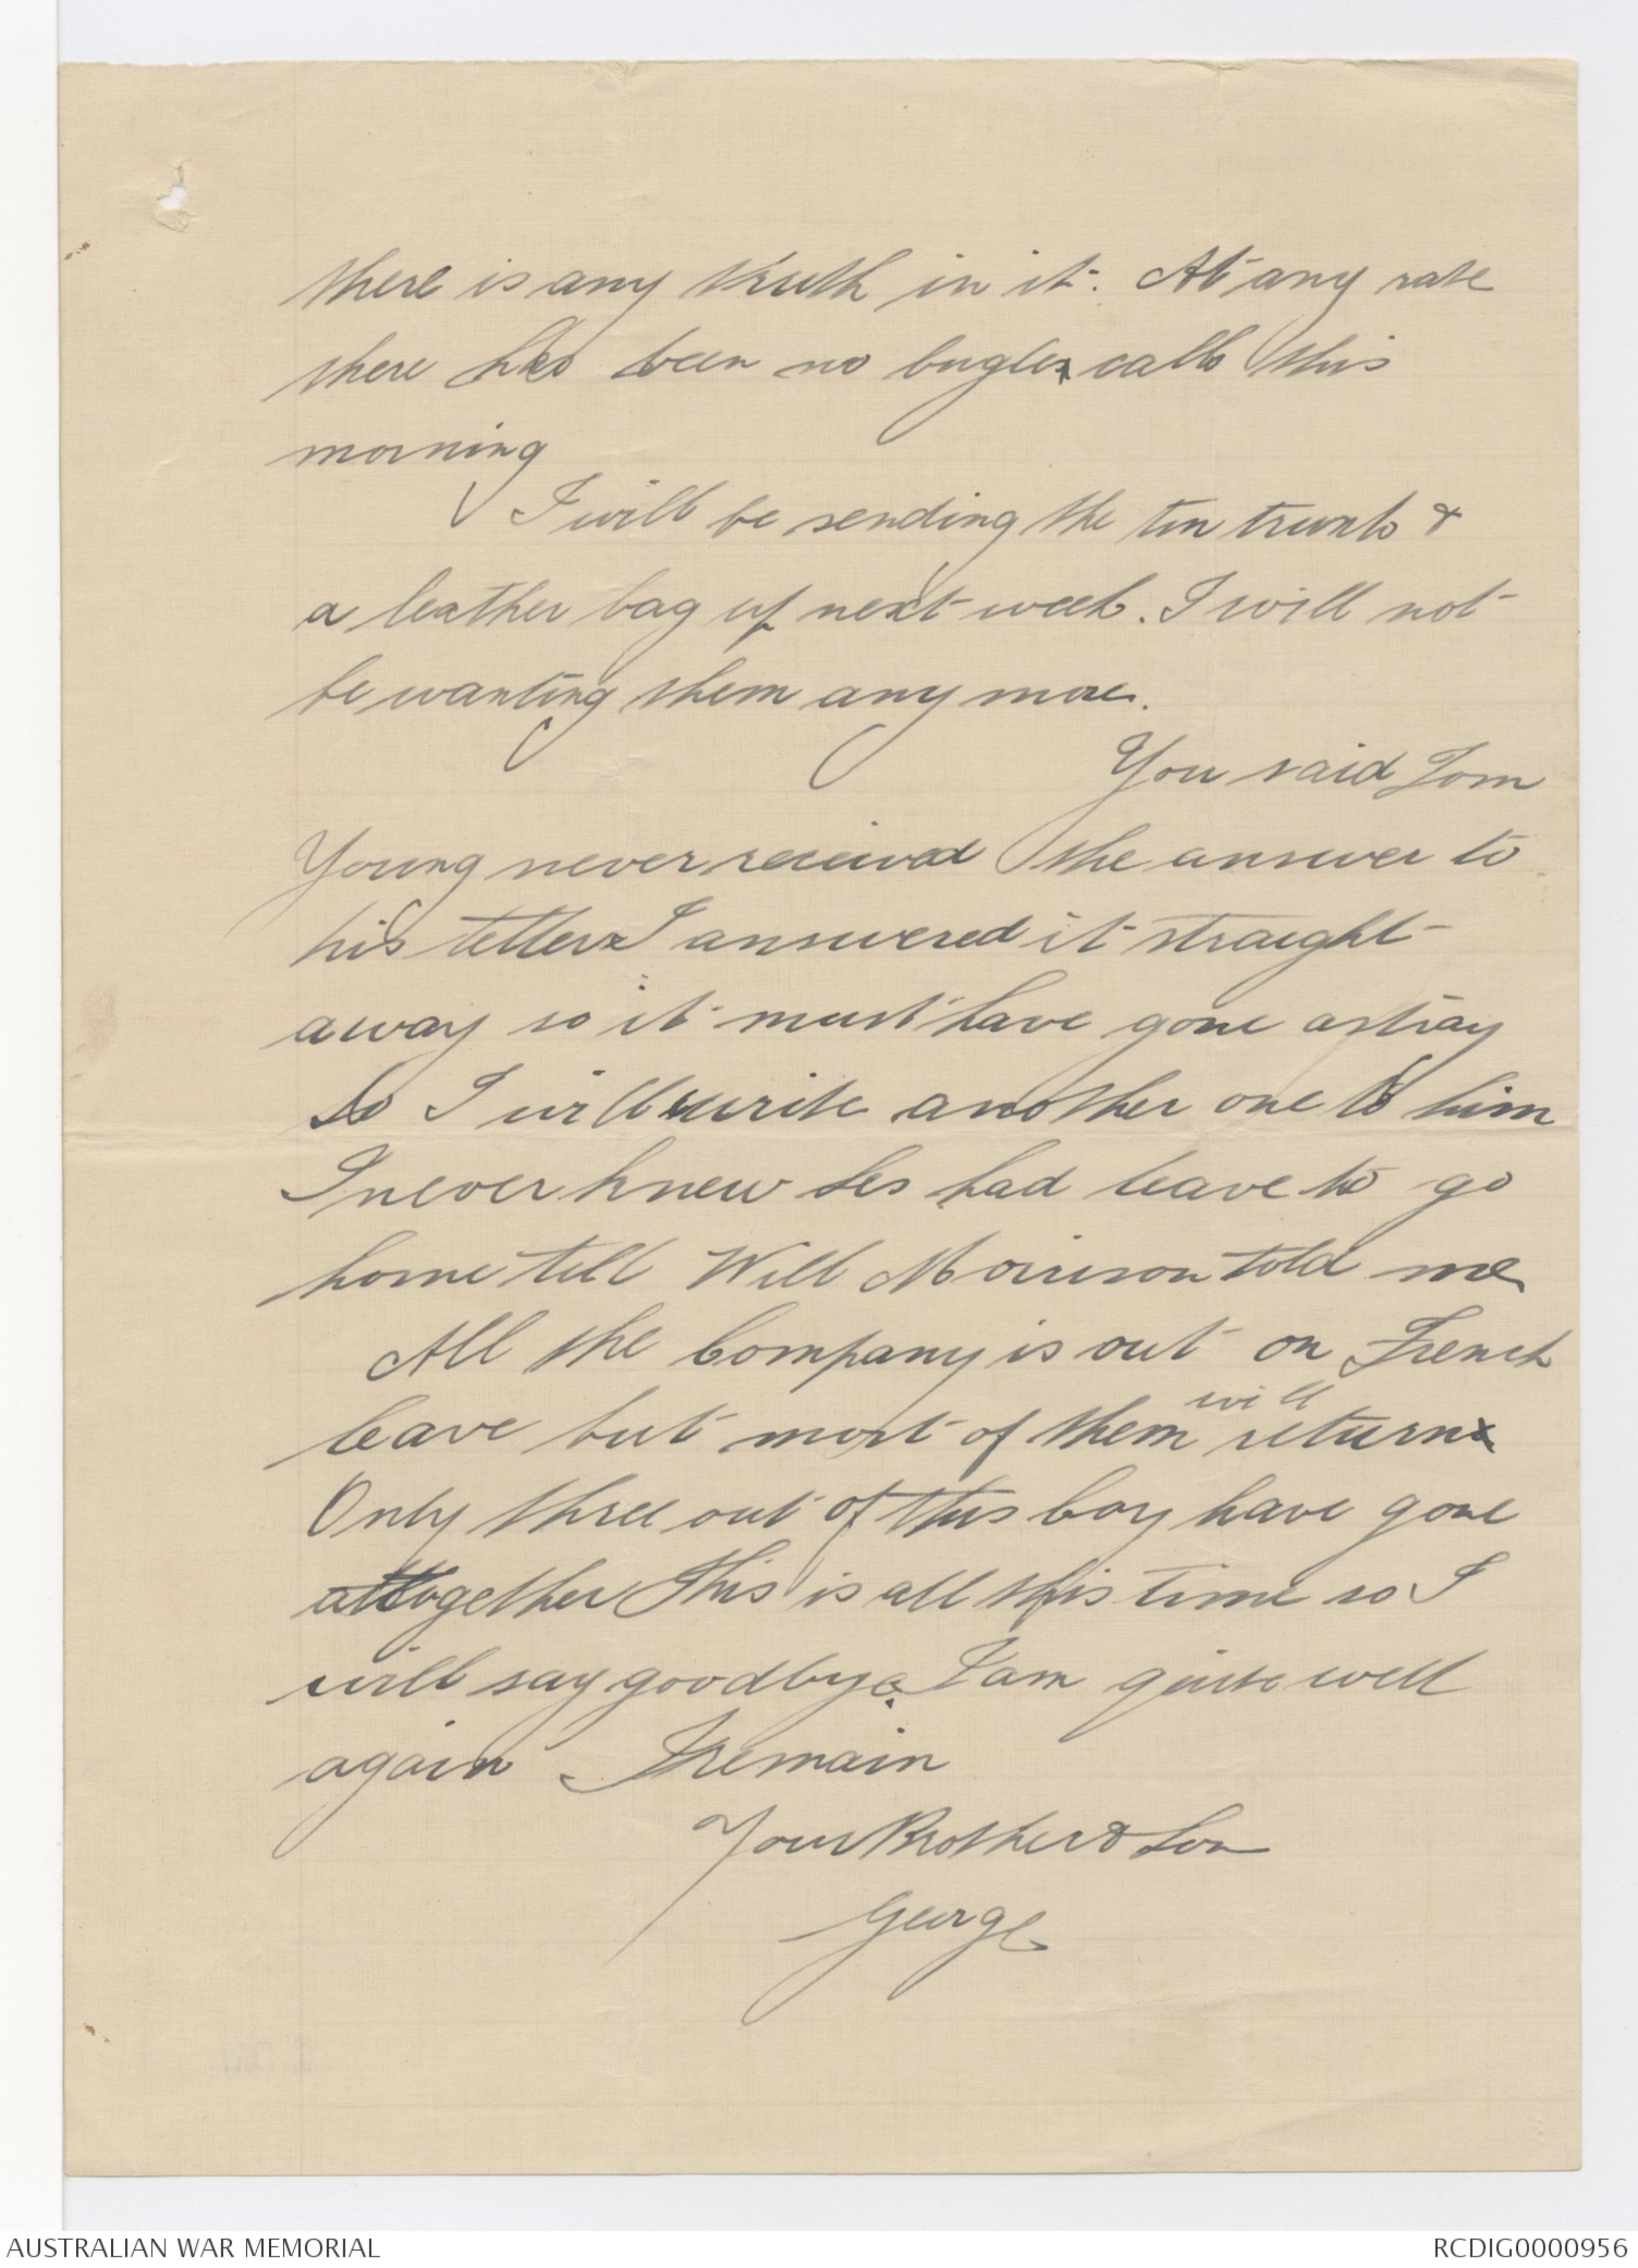 there is any truth in it. At any rate
there has been no bugle calls this
morning
I will be sending the tin trunk &
a leather bag up next week. I will not
be wanting them any more.
You said Tom
Young never received the answer to
his letter I answered it straight
away so it must have gone astray
So I will write another one to him
I never knew Les had leave to go
home till Will Morrison told me
All the Company is out on French
leave but most of them will return
Only three out of this boy have gone
altogether This is all this time so I
will say goodbye. I am quite well
again I remain
Your Brother & Son
George
AUSTRALIAN WAR MEMORIAL
RCDIG0000956